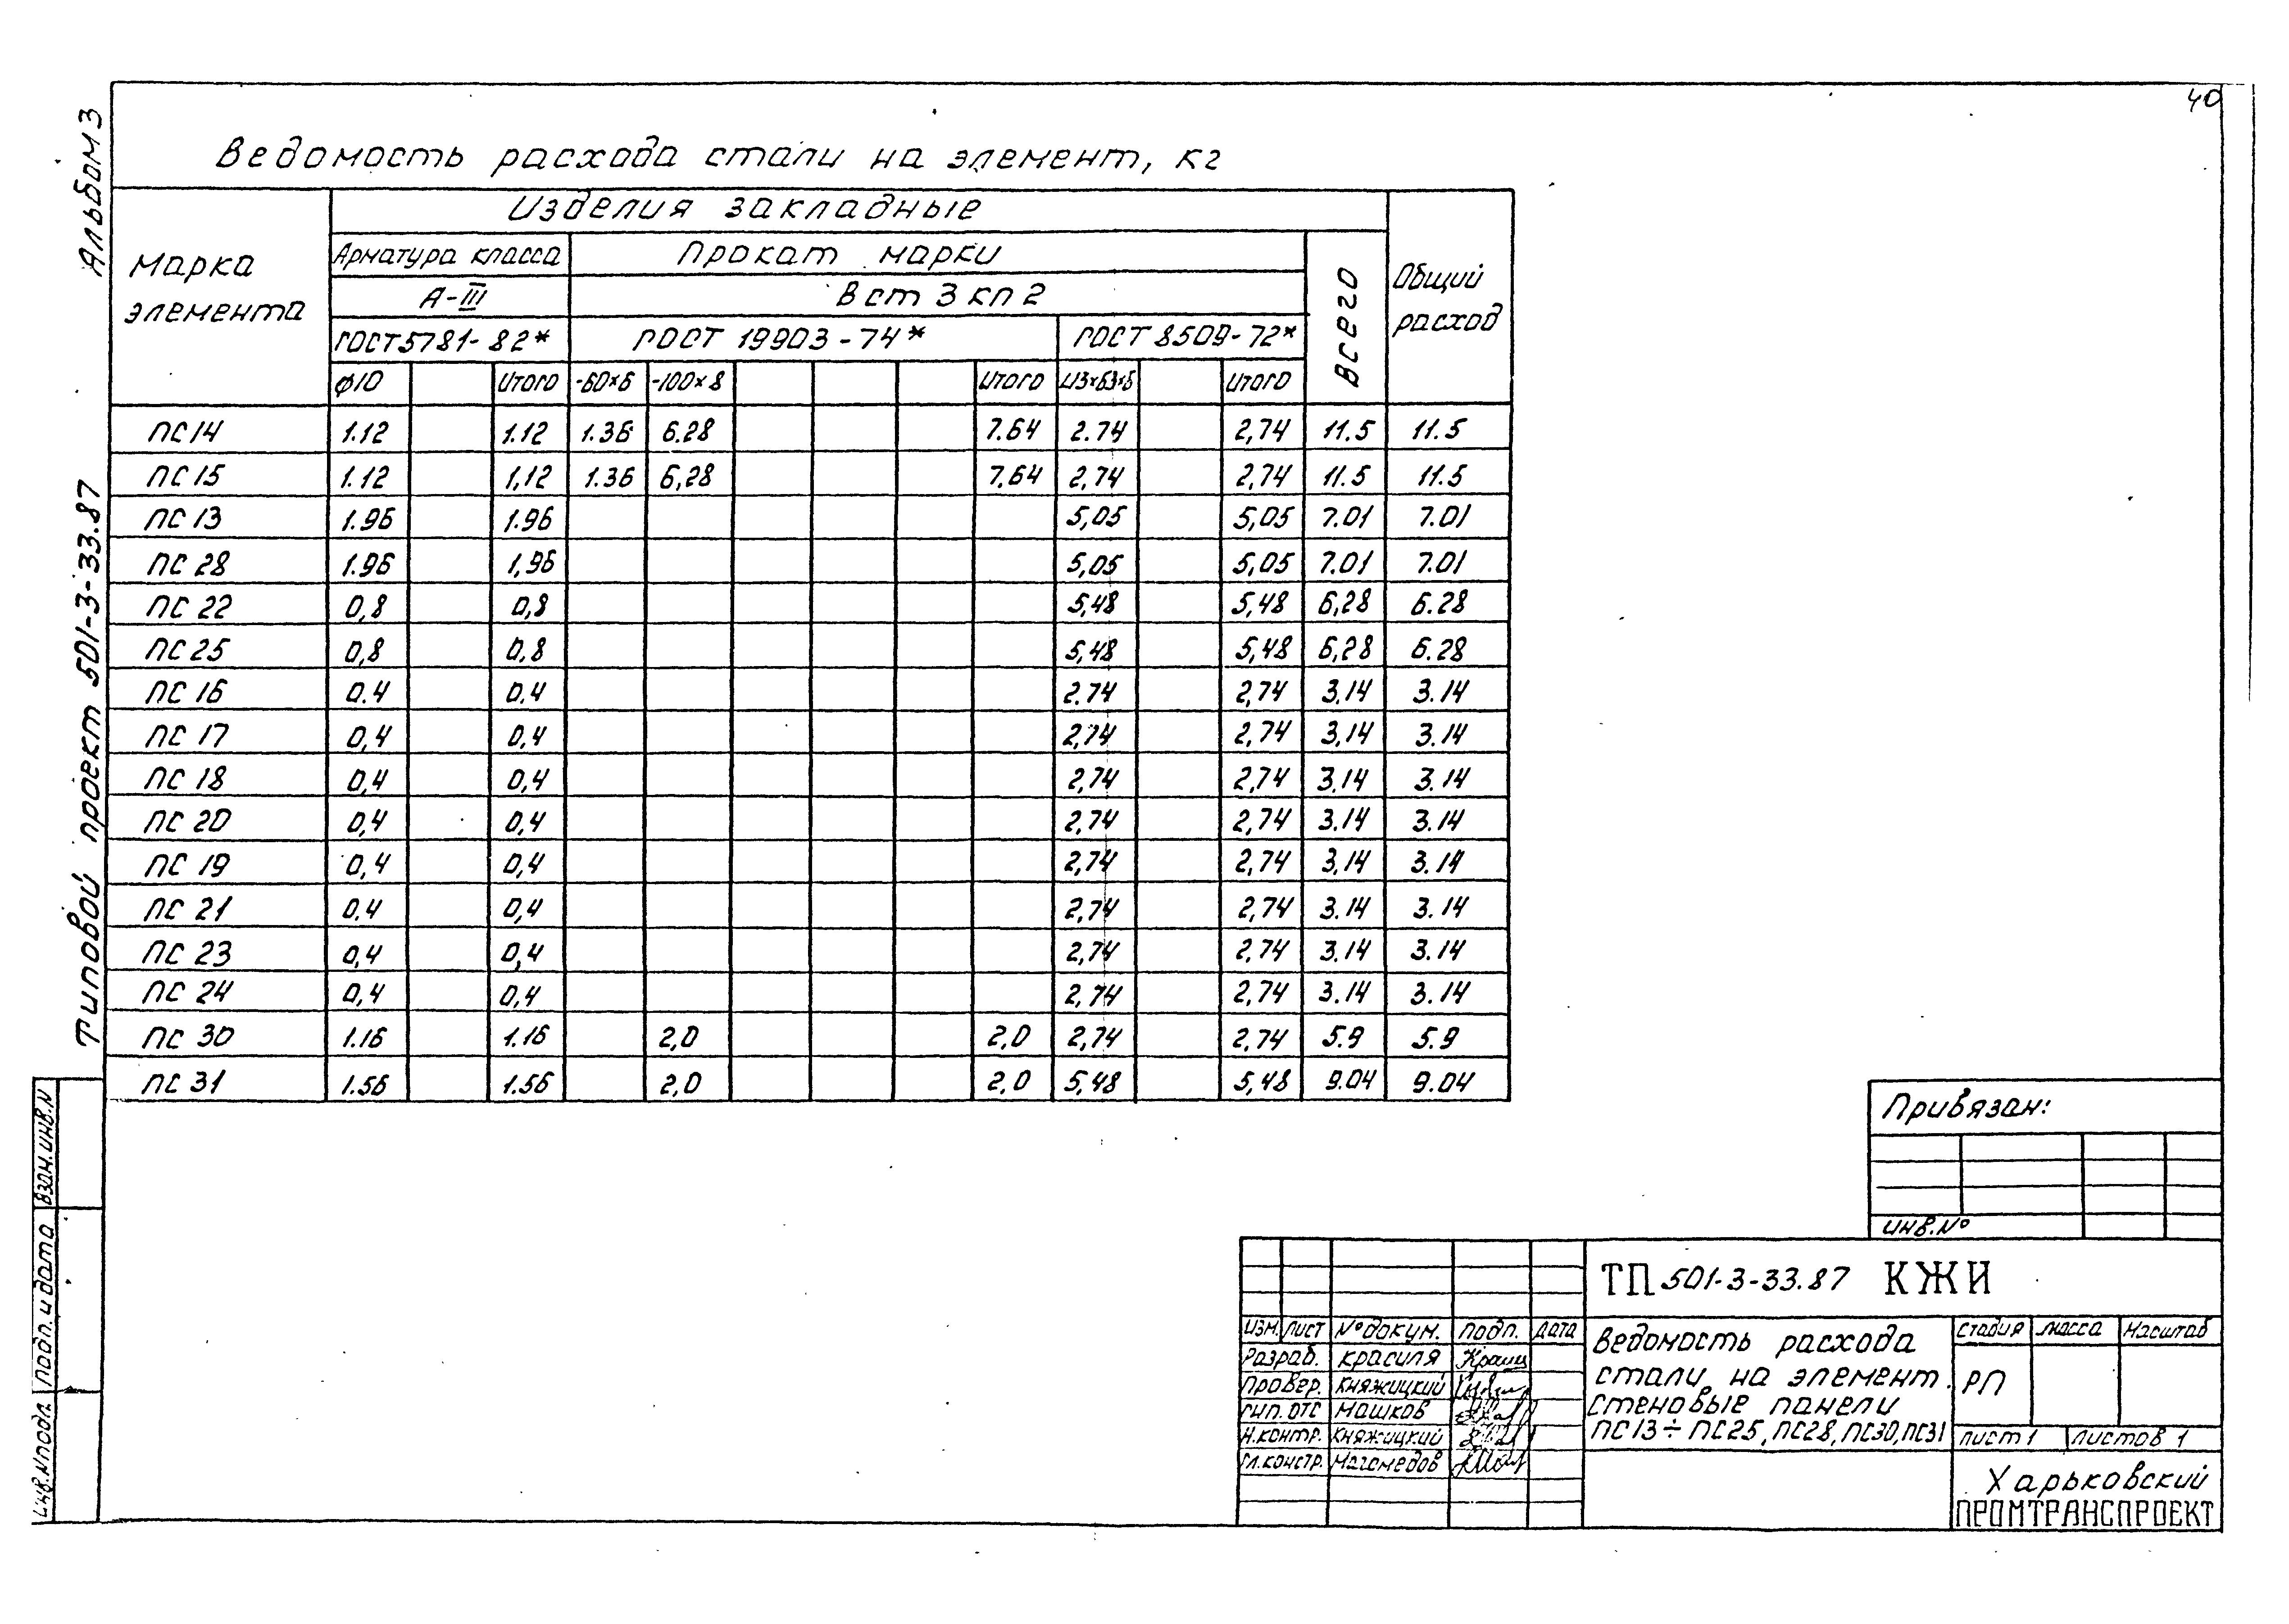 40
Альбом 3
Типовой проект 501-3-33.87
Ведомость расхода стали на элемент, кг
Марка элемента
Изделия закладные
Общий расход
Арматура класса
Прокат марки
Всего
А-III
Вст 3 кп 2
ГОСТ 5781-82*
ГОСТ 19903-74*
ГОСТ 8509-72*
ф10 Итого -60×6 -100×8 Итого Итого
ПС14 1.12 1.12 1.36 6.28 7.64 2.74 2,74 11.5 11.5
ПС15 1.12 1,12 1.36 6,28 7.64 2,74 2,74 11.5 11.5
ПС13 1.96 1.96 5,05 5,05 7.01 7.01
ПС 28 1.96 1,96 5,05 5,05 7.01 7.01
ПС 22 0,8 0,8 5,48 5,48 6,28 6.28
ПС 25 0,8 0,8 5,48 5,48 6,28 6.28
ПС 16 0.4 0.4 2.74 2,74 3.14 3.14
ПС 17 0,4 0,4 2,74 2,74 3,14 3.14
ПС 18 0,4 0,4 2,74 2,74 3.14 3.14
ПС 20 0,4 0,4 2,74 2,74 3.14 3.14
ПС 19 0,4 0,4 2,74 2,74 3.14 3.14
ПС 21 0.4 0,4 2,74 2,74 3.14 3.14
ПС 23 0,4 0,4 2,74 2,74 3.14 3.14
ПС 24 0,4 0,4 2,74 2,74 3.14 3.14
ПС 30 1.16 1.16 2,0 2,0 2,74 2.74 5.9 5.9
ПС 31 1.56 1.56 2,0 2,0 5,48 5,48 9.04 9.04
Привязан:
Инв.№
Взам.инв.N
Подп. и дата
Инв.Nподл.
ТП 501-3-33.87 КЖИ
Изм. Лист № докум. Подп. Дата
Разраб. Красиля
Провер. Княжицкий
Гип.ОТС Машков
Н.контр. Княжицкий
Гл.констр. Магомедов
Ведомость расхода
стали на элемент.
Стеновые панели
ПС13÷ПС25, ПС28, ПС30, ПС31
Стадия Масса Масштаб
РП
Лист 1 Листов 1
Харьковский
ПРОМТРАНСПРОЕКТ